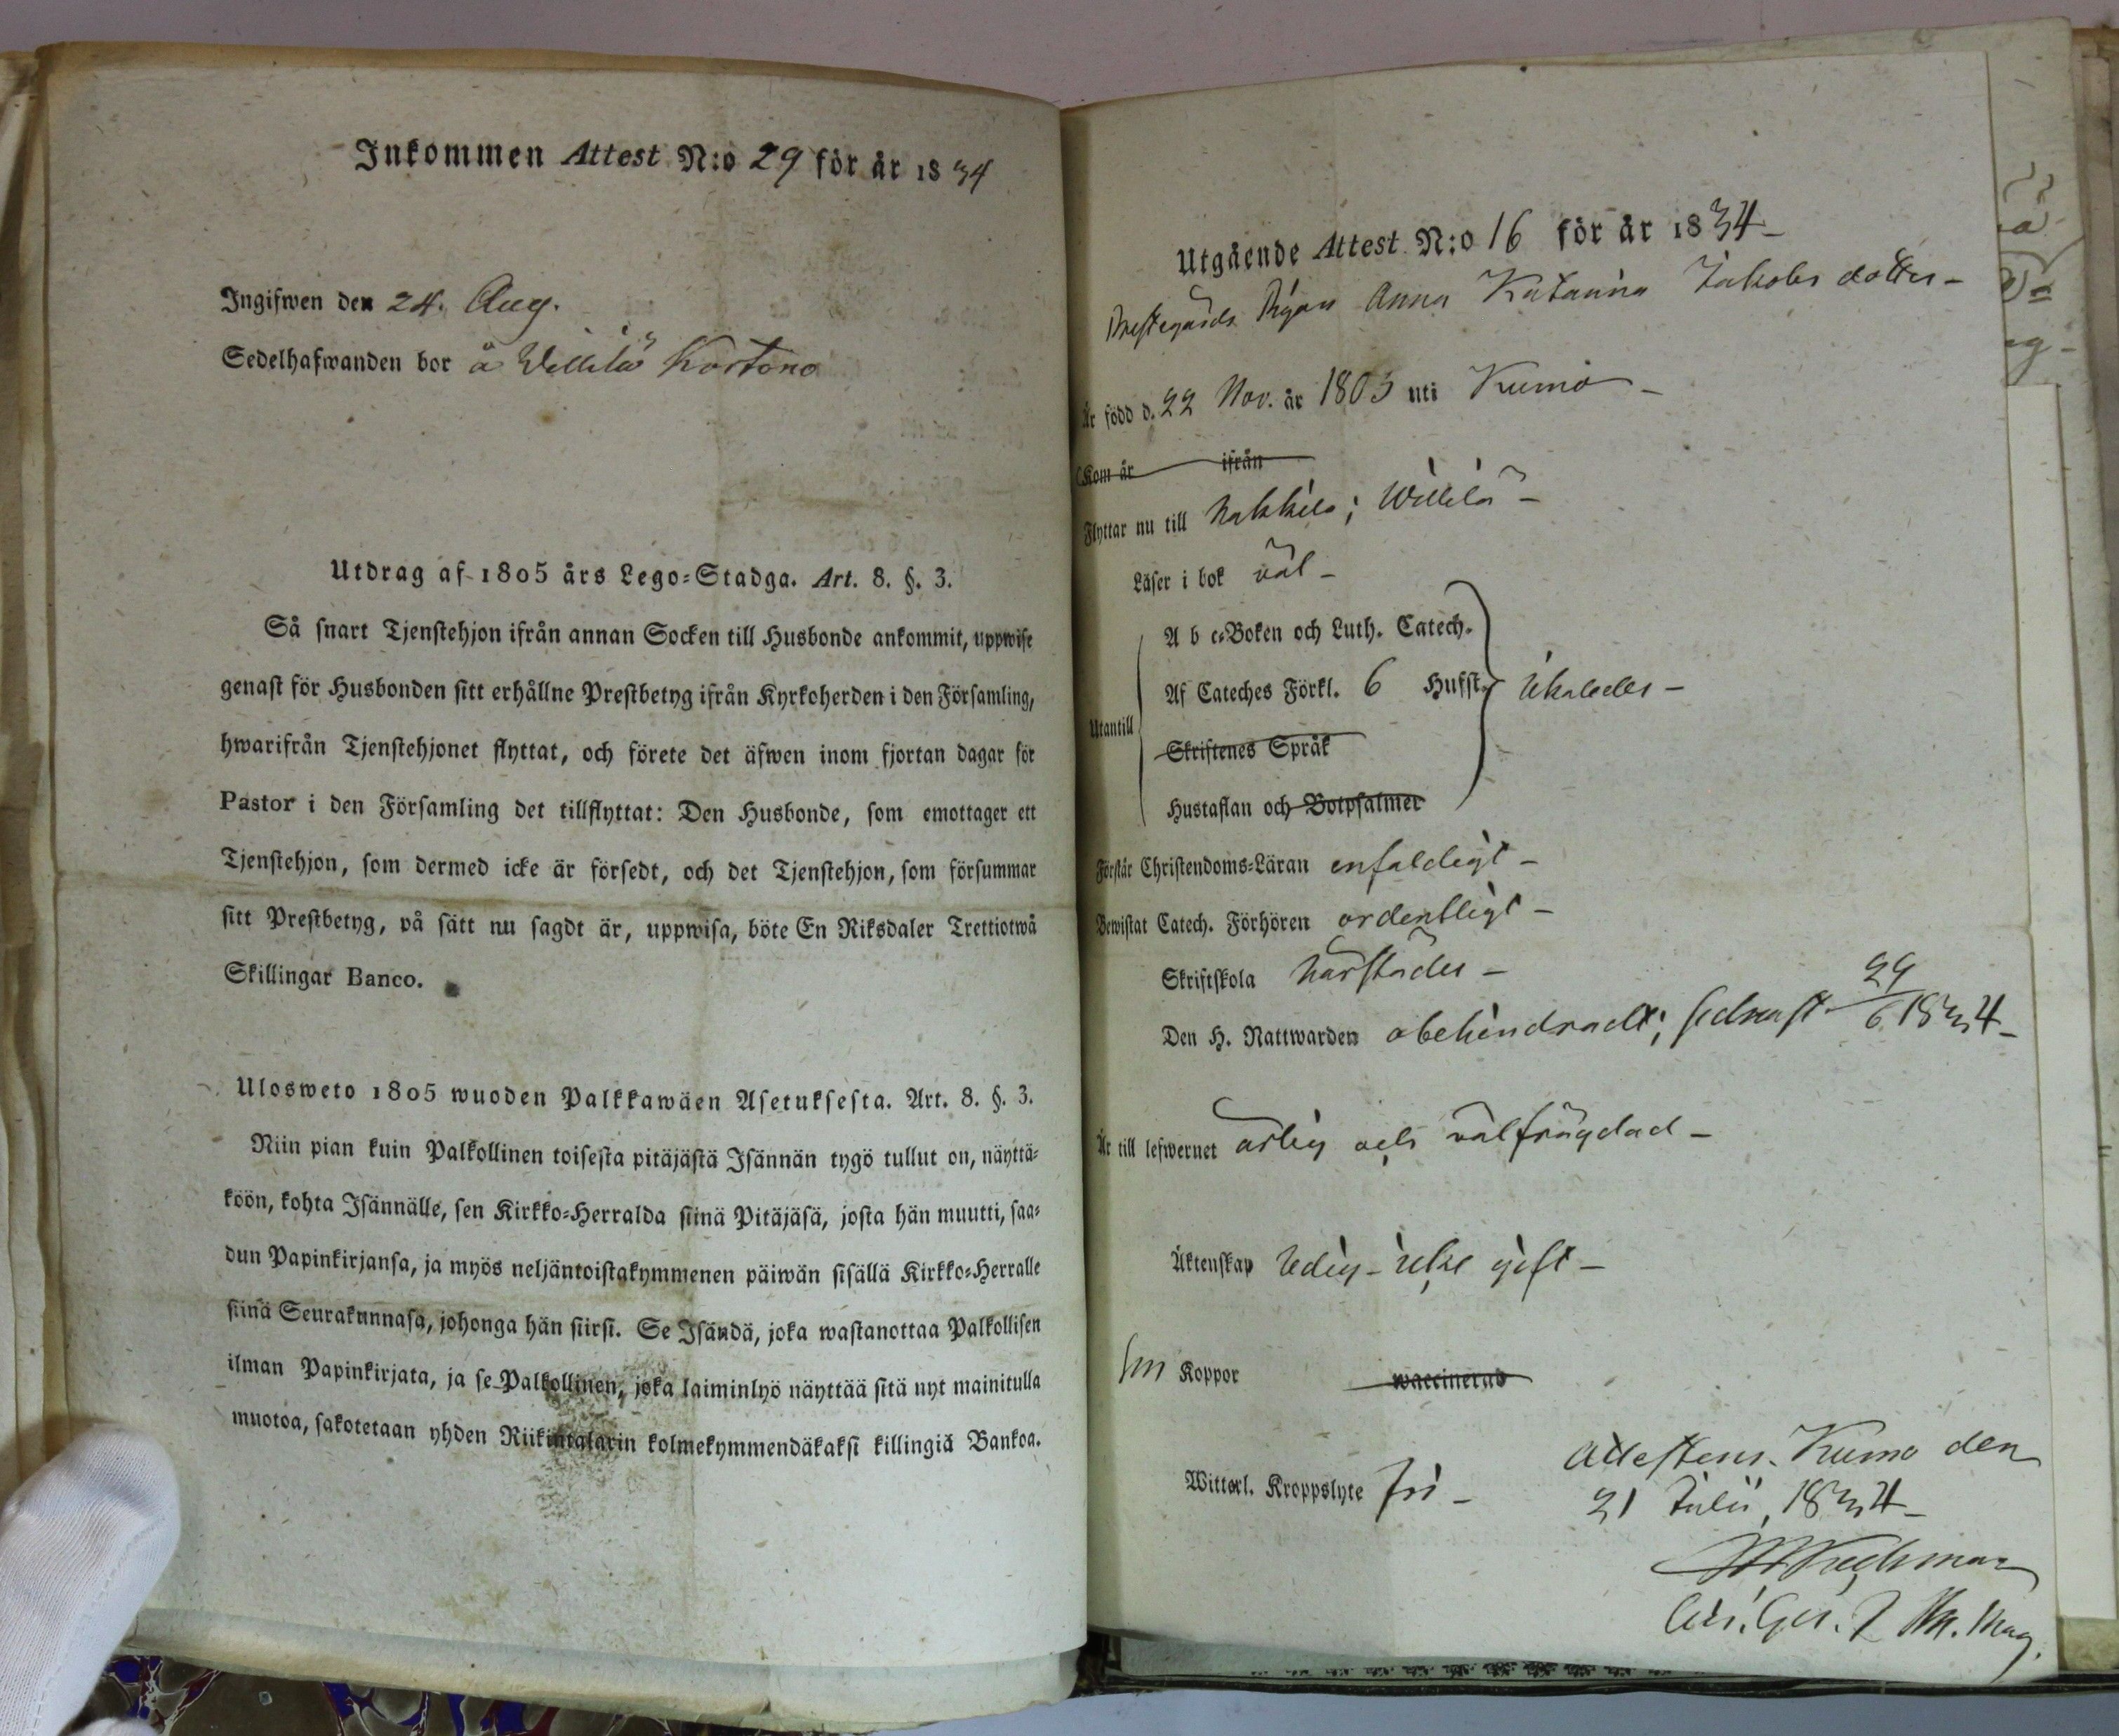 Inkommen Attest N:o 29 för år 1834
Ingifwen den 24. Aug.
Sedelhafwanden bor å Willilä Kortono
Utdrag af 1805 års Lego-Stadga. Art. 8. §. 3.
Så snart Tjenstehjon ifrån annan Socken till Husbonde ankommit, uppwise
genast för Husbonden sitt erhållne Prestbetyg ifrån Kyrkoherden i den Församling,
hwarifrån Tjenstehjonet flyttat, och förete det äfwen inom fjortan dagar för
Pastor i den Församling det tillflyttat: Den Husbonde, som emottager ett
Tjenstehjon, som dermed icke är försedt, och det Tjenstehjon, som försummar
sitt Prestbetyg, på sätt nu sagdt är, uppwisa, böte En Riksdaler Trettiotwå
Skillingar Banco.
Ulosweto 1805 wuoden Palkkawäen Asetuksesta. Art. 8. §. 3.
Niin pian kuin Palkollinen toisesta pitäjästä Isännän tygö tullut on, näyttä-
köön, kohta Isännälle, sen Kirkko-Herralda siinä Pitäjäsä, josta hän muutti, saa-
dun Papinkirjansa, ja myös neljäntoistakymmenen päiwän sisällä Kirkko-Herralle
siinä Seurakunnasa, johonga hän siirsi. Se Isändä, joka wastanottaa Palkollisen
ilman Papinkirjata, ja se Palkollinen, joka laiminlyö näyttää sitä nyt mainitulla
muotoa, sakotetaan yhden Riikintalarin kolmekymmendäkaksi killingiä Bankoa.
Utgående Attest N:o 16 för år 1834
Prestegårds Pigan Anna Katarina Jakobs dotter
Är född d. 22 Nov. år 1803 uti Kumo
Kom år ifrån
Flyttar nu till Nakkila; Willilä
Läser i bok väl
A b c-Boken och Luth. Catech.
Af Cateches Förkl. 6 Hufst. likaledes
Utantill
Skriftenes Språk
Hustaflan och Botpsalmer
Förstår Christendoms-Läran enfaldigt
Bewistat Catech. Förhören ordentligt
Skriftskola härstädes
Den H. Nattwarden obehindradt; sednast 29/6 1834
Är till lefwernet ärlig och välfrägdad
Äktenskap ledig icke gift
Koppor waccinerad
Witterl. Kroppslyte fri
Attesteras. Kumo den
21 Julii, 1834